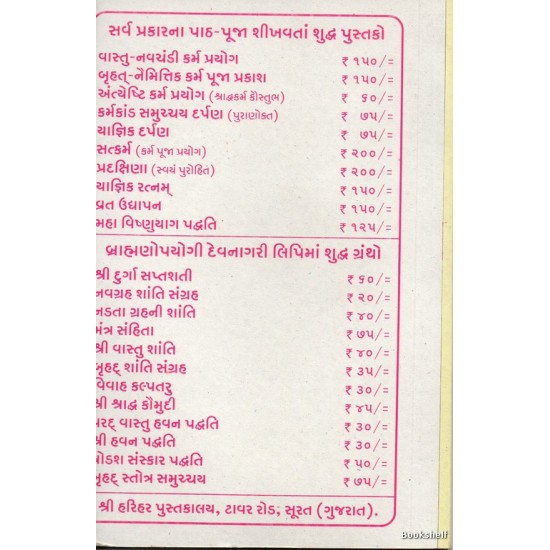 સર્વ પ્રકારના પાઠ-પૂજા શીખવતાં શુદ્ધ પુસ્તકો
વાસ્તુ-નવચંડી કર્મ પ્રયોગ ₹ ૧૫૦/=
બૃહત્-નૈમિત્તિક કર્મ પૂજા પ્રકાશ ₹ ૧૫૦/=
અંત્યેષ્ટિ કર્મ પ્રયોગ (શ્રાદ્ધકર્મ કૌસ્તુભ) ₹ ૬૦/=
કર્મકાંડ સમુચ્ચય દર્પણ (પુરાણોક્ત) ₹ ૭૫/=
યાજ્ઞિક દર્પણ ₹ ૭૫/=
સત્કર્મ (કર્મ પૂજા પ્રયોગ) ₹ ૨૦૦/=
પ્રદક્ષિણા (સ્વયં પુરોહિત) ₹ ૨૦૦/=
યાજ્ઞિક રત્નમ્ ₹ ૧૫૦/=
વ્રત ઉધાપન ₹ ૧૫૦/=
મહા વિષ્ણુયાગ પદ્ધતિ ₹ ૧૨૫/=
બ્રાહ્મણોપયોગી દેવનાગરી લિપિમાં શુદ્ધ ગ્રંથો
શ્રી દુર્ગા સપ્તશતી ₹ ૬૦/=
નવગ્રહ શાંતિ સંગ્રહ ₹ ૨૦/=
નડતા ગ્રહની શાંતિ ₹ ૪૦/=
મંત્ર સંહિતા ₹ ૭૫/=
શ્રી વાસ્તુ શાંતિ ₹ ૪૦/=
બૃહદ્ શાંતિ સંગ્રહ ₹ ૩૫/=
વિવાહ કલ્પતરુ ₹ ૩૦/=
શ્રી શ્રાદ્ધ કૌમુદી ₹ ૪૫/=
વાસ્તુ હવન પદ્ધતિ ₹ ૩૦/=
શ્રી હવન પદ્ધતિ ₹ ૩૦/=
ષોડશ સંસ્કાર પદ્ધતિ ₹ ૫૦/=
બૃહદ્ સ્તોત્ર સમુચ્ચય ₹ ૭૫/=
શ્રી હરિહર પુસ્તકાલય, ટાવર રોડ, સૂરત (ગુજરાત).
Bookshelf